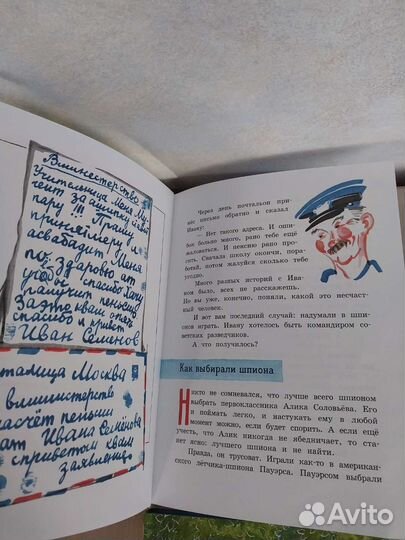 В министерство
Учительница Меня му-
чеит за ашипку ставит
пару !!! Прашу
принять меры и
асвабадит Меня
по Здаровью ат
учёбы спасибо Хачу
палучит пенсию
Зато вам опять
спасибо и привет
Иван Семинов
сталица Москва
в министерство
насчёт пеньсии
ат Ивана Семёнова
с приветом к вам
заявление
Через день почтальон при-
нёс письмо обратно и сказал
Ивану:
— Нет такого адреса. И оши-
бок больно много, рано тебе ещё
жаловаться. И пенсию рано про-
сить. Сначала школу окончи, пора-
ботай, потом жалуйся сколько тебе
угодно.
Много разных историй с Ива-
ном было, всех не расскажешь.
Но вы уже, конечно, поняли, какой это несчаст-
ный человек.
И вот вам последний случай: надумали в шпи-
онов играть. Ивану хотелось быть командиром со-
ветских разведчиков.
А что получилось?
Как выбирали шпиона
Никто не сомневался, что лучше всего шпионом
выбрать первоклассника Алика Соловьёва. Его
и поймать легко, и настукать ему в любой
момент можно, если будет спорить. А если ещё
учесть, что Алик никогда не ябедничает, то ста-
нет ясно: лучшего шпиона и не найти.
Правда, он трусоват. Играли как-то в американ-
ского лётчика-шпиона Пауэрса. Пауэрсом выбрали
Avito